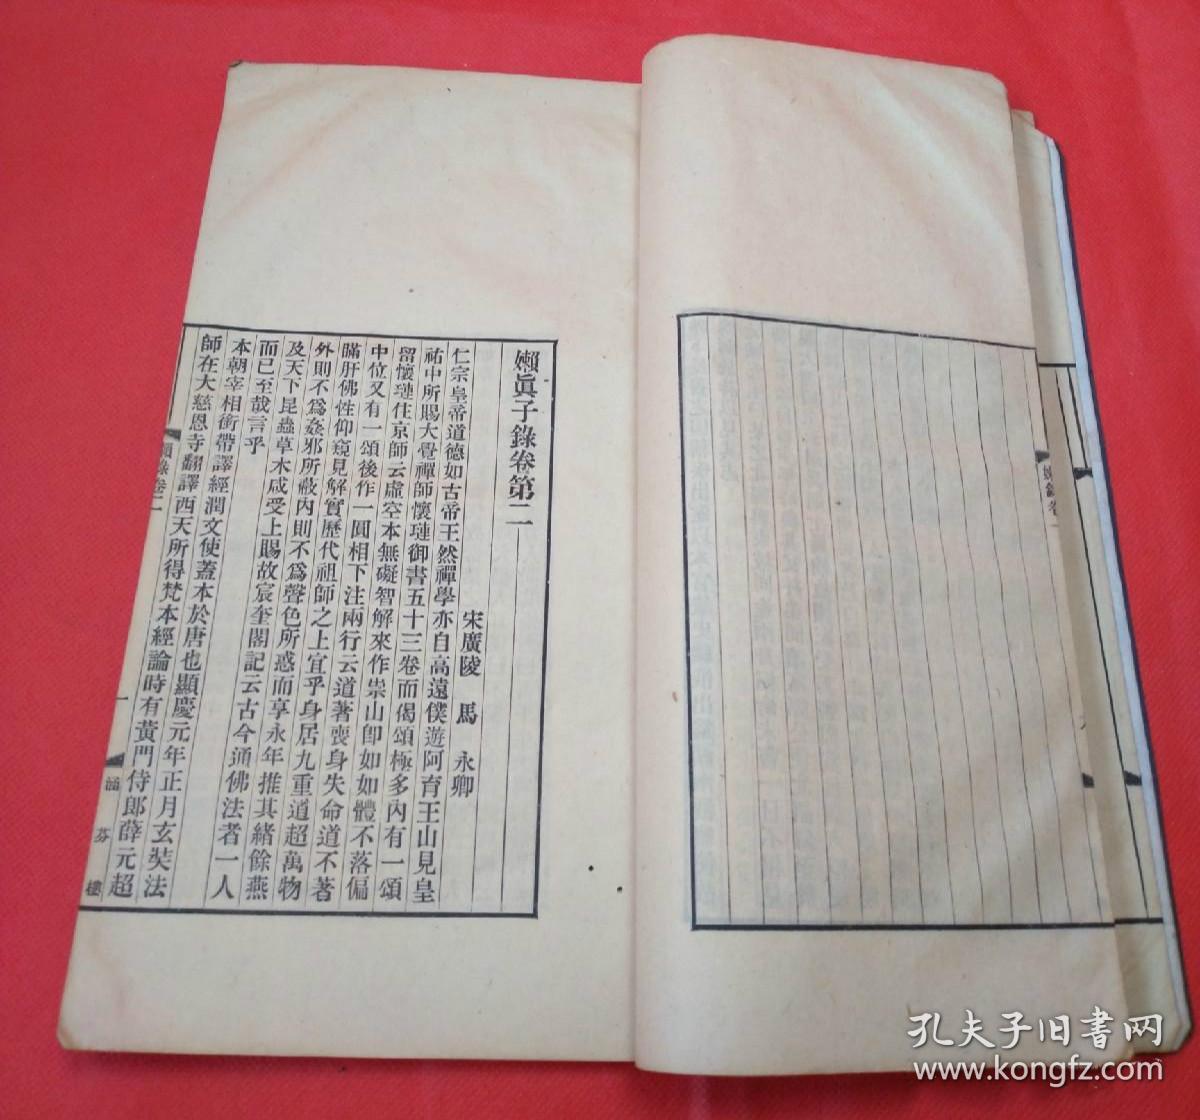 嬾眞子錄卷第二
宋廣陵 馬 永卿
仁宗皇帝道德如古帝王然禪學亦自高遠僕遊阿育王山見皇
祐中所賜大覺禪師懷璉御書五十三卷而偈頌極多內有一頌
留懷璉住京師云虛空本無礙智解來作祟山卽如如體不落偏
中位又有一頌後作一圓相下注兩行云道著喪身失命道不著
瞞肝佛性仰窺見解實歷代祖師之上宜乎身居九重道超萬物
外則不爲姦邪所蔽內則不爲聲色所惑而享永年推其緒餘燕
及天下昆蟲草木咸受上賜故宸奎閣記云古今通佛法者一人
而已至哉言乎
本朝宰相銜帶譯經潤文使蓋本於唐也顯慶元年正月玄奘法
師在大慈恩寺翻譯西天所得梵本經論時有黃門侍郎薛元超
錄卷二
一
涵芬樓
孔夫子旧书网
www.kongfz.com